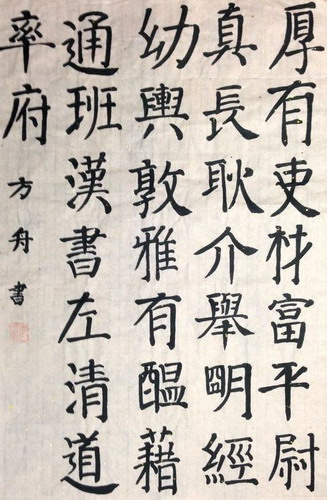 厚有吏材富平尉
真長耿介舉明經
幼輿敦雅有醞藉
通班漢書左清道
率府
方舟書